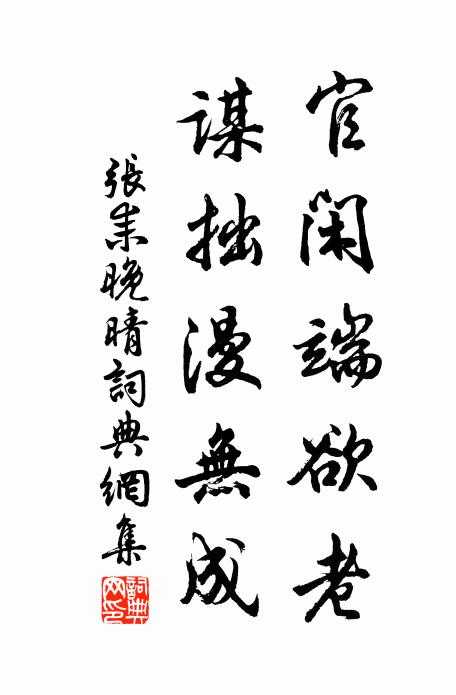 官閑端欲老
謀拙漫無成
張耒晚晴詞典網集
詞典網印